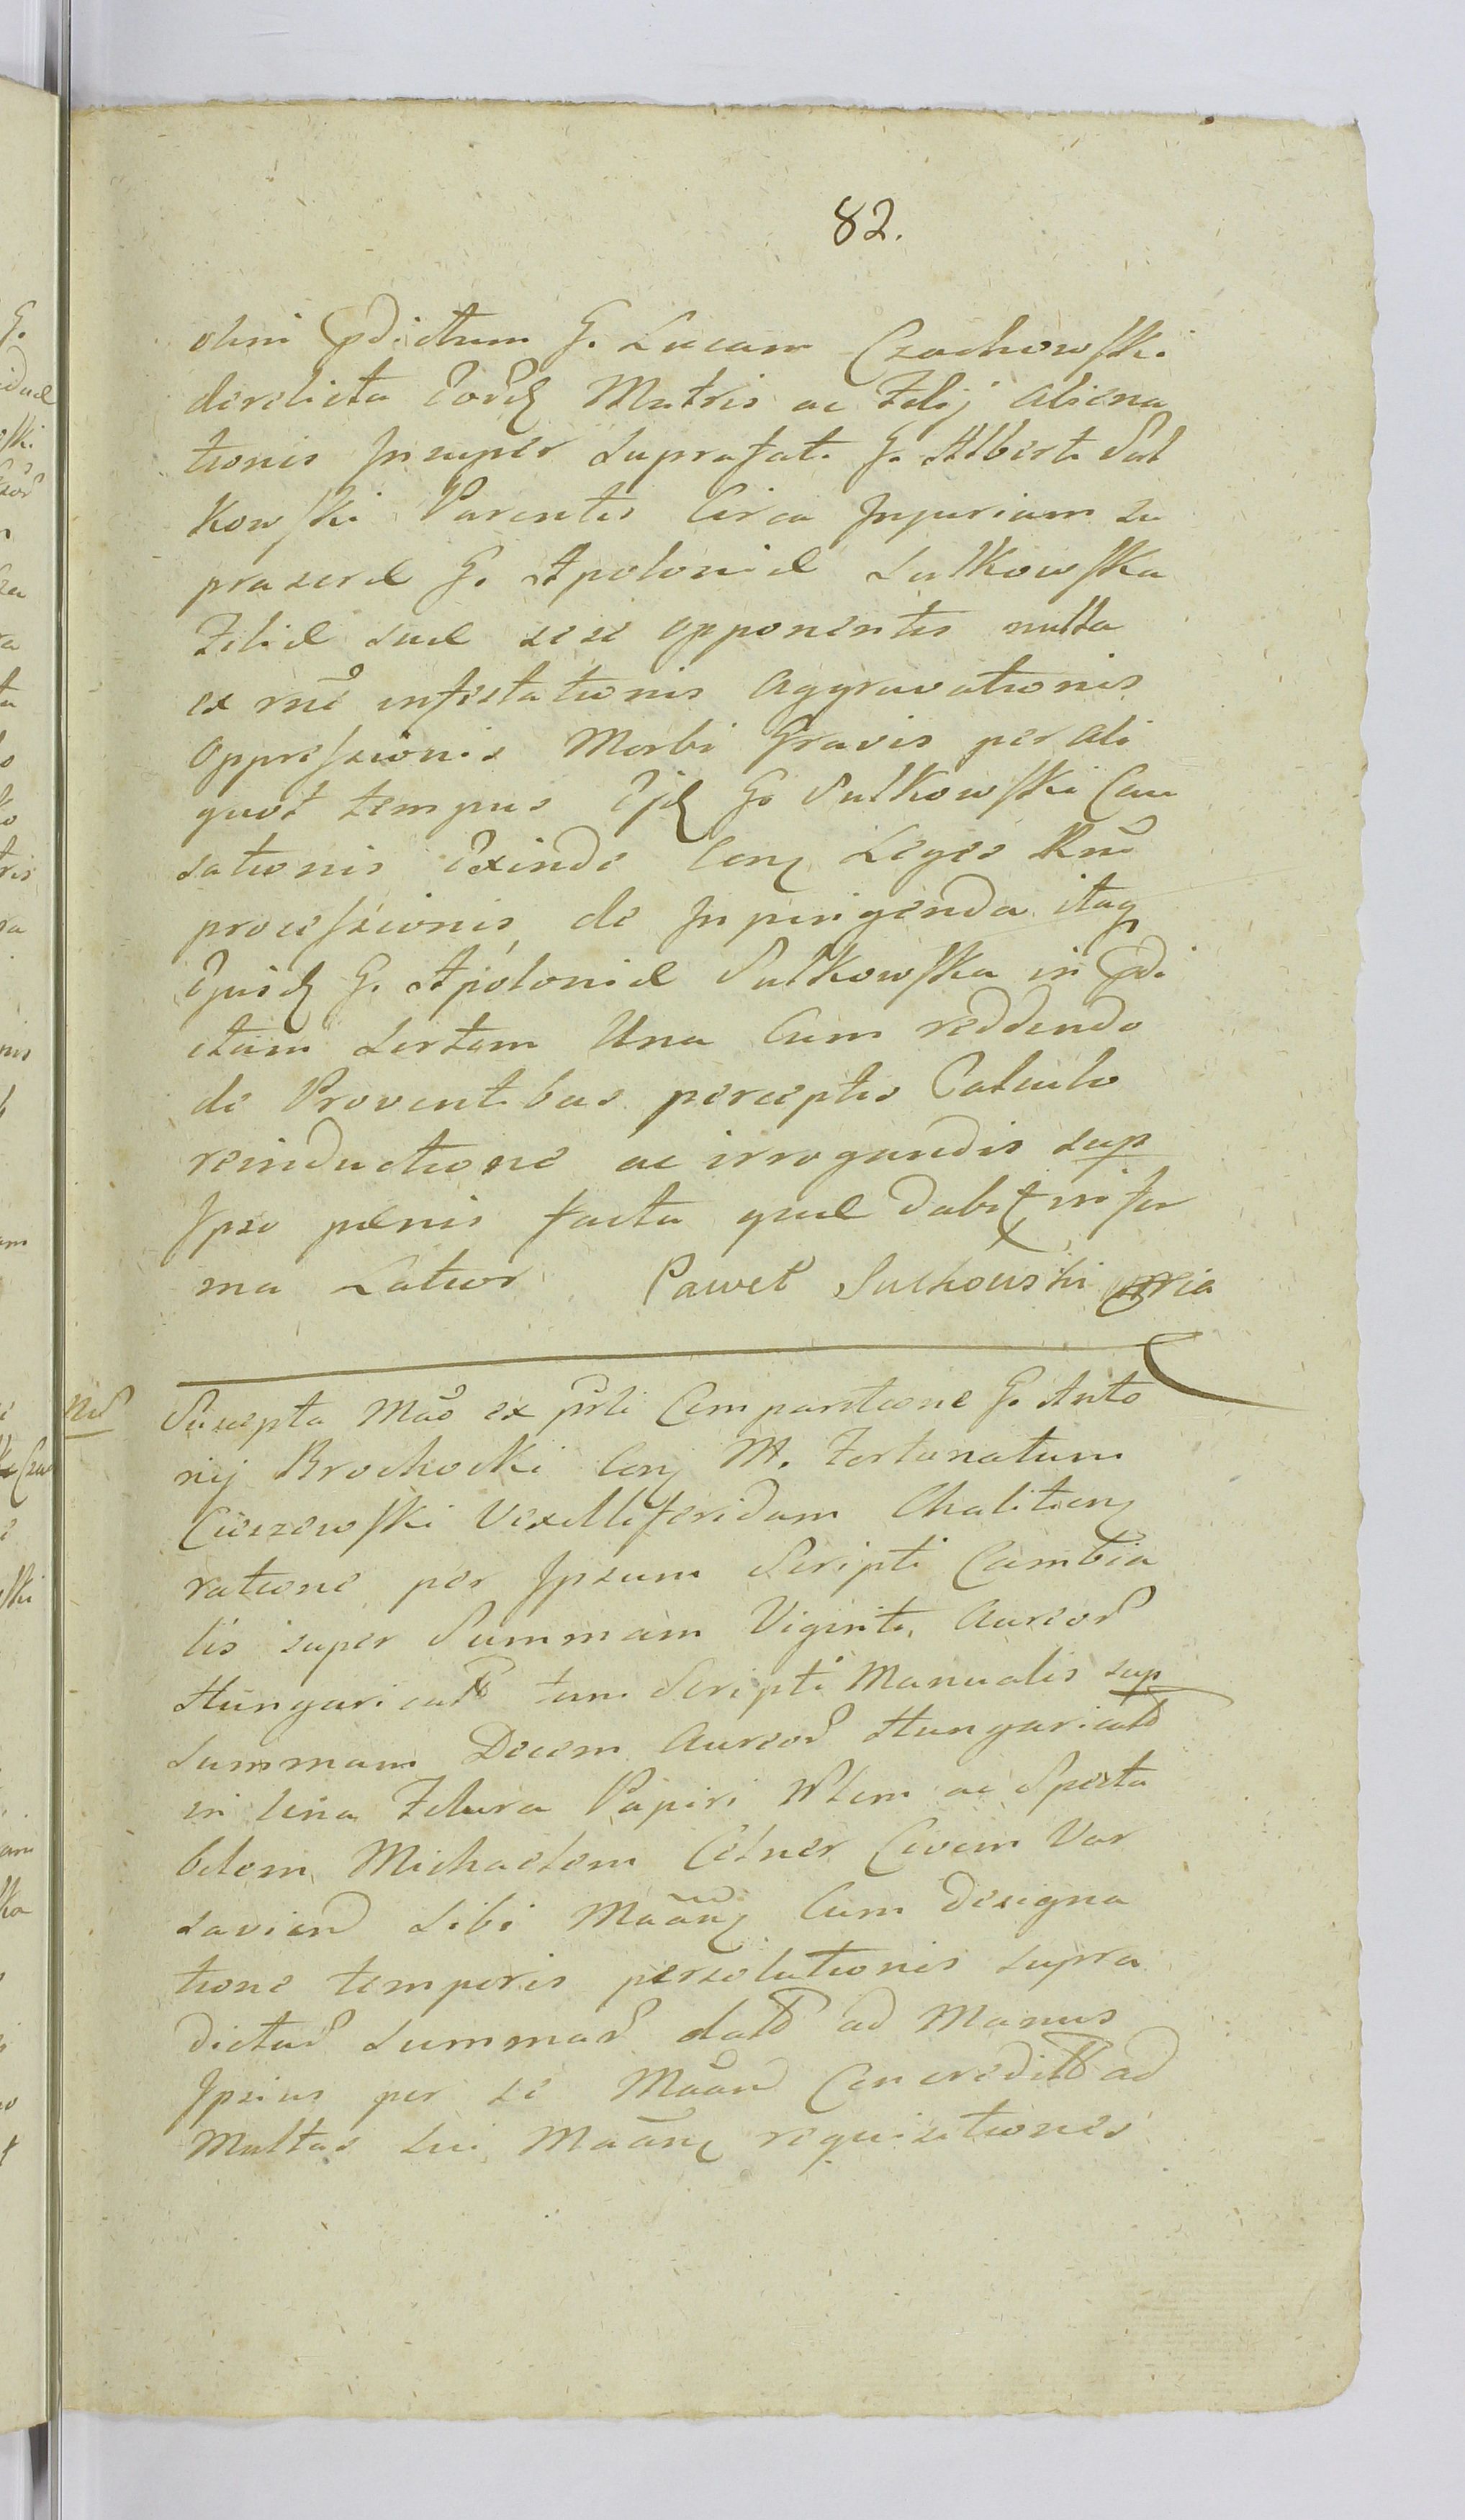 82.
olim pdictum G. Lucam Czachowski
derelicta Eord Matris ac Filij aliena
tionis Insuper Suprafati G. Alberti Sul
kowski Parentis Circa Injuriam su
praseræ G. Apoloniæ Sulkowska
Filiæ suæ sese opponentis nulla
ex rne infestationis Aggravationis
Oppressionis Morbi Gravis per ali
quot tempus Ejd G. Sulkowski Cau
sationis Exinde Cong Leges Rni
processionis de Inpingenda itaq
Ejusd G. Apoloniæ Sulkowska in pdi
ctam Sortem Una Cum reddendo
de Proventibus perceptis Calculo
reinductione ac irrogandis sup
Ipso pænis facta quæ dabit in for
ma Latior Paweł Sulkowski mria
Nid
Suscepta Mão ex prli Comparitione G. Anto
nij Brochocki Cong M. Fortunatum
Cieszewski Vexilliferidam Chalicien
ratione per Ipsum Scripti Cambia
lis super Summam Viginti Aureor
Hungarical tum Scripti Manualis sup
Summam Decem Aureor Hungarical
in Una Filura Papiri Nlem ac Specta
bilem Michaelem Celner Civem Var
savien Sibi Mãang Cum designa
tione temporis persolutionis supra
dictar Summar dat ad Manus
Ipsius per se Mãan Concredit ad
Multas sui Mãang requisitiones